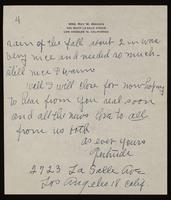 4
MRS. ROY W.
LOS ANGELES 18, CALIFORNIA
rain of the fall about 2 in was
very nice and needed so much-
still nice & warm
Well I will close for now hoping
to hear from you real soon
and all the news love to all
from us both
as ever yours
Gertrude
2723 La Salle Ave
Los Angeles 18 Calif.